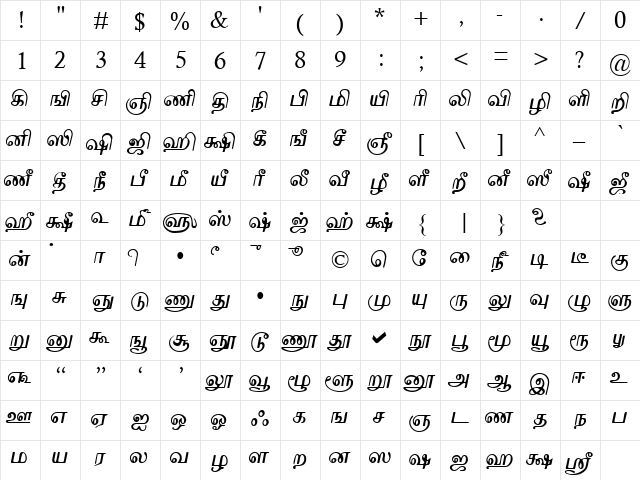 ! " # $ % & ' ( ) * + , - . / 0
1 2 3 4 5 6 7 8 9 : ; < = > ? @
கி ஙி சி ஞி ணி தி நி பி மி யி ரி லி வி ழி ளி றி
னி ஸி ஷி ஜி ஹி க்ஷி கீ ஙீ சீ ஞீ [ \ ] ^ _ `
ணீ தீ நீ பீ மீ யீ ரீ லீ வீ ழீ ளீ றீ னீ ஸீ ஷீ ஜீ
ஹீ க்ஷீ ஸ் ஷ் ஜ் ஹ் க்ஷ் { | }
ன் ா ி • ீ © ெ ே ை நீ டி டீ கு
ஙு சு ஞு டு ணு து • நு பு மு யு ரு லு வு ழு ளு
று னு கூ ஙூ சூ ஞூ டூ ணூ தூ ✔ நூ பூ மூ யூ ரூ
“ ” ‘ ’ லூ வூ ழூ ளூ றூ னூ அ ஆ இ ஈ உ
ஊ எ ஏ ஐ ஒ ஓ ஃ க ங ச ஞ ட ண த ந ப
ம ய ர ல வ ழ ள ற ன ஸ ஷ ஜ ஹ க்ஷ ஸ்ரீ